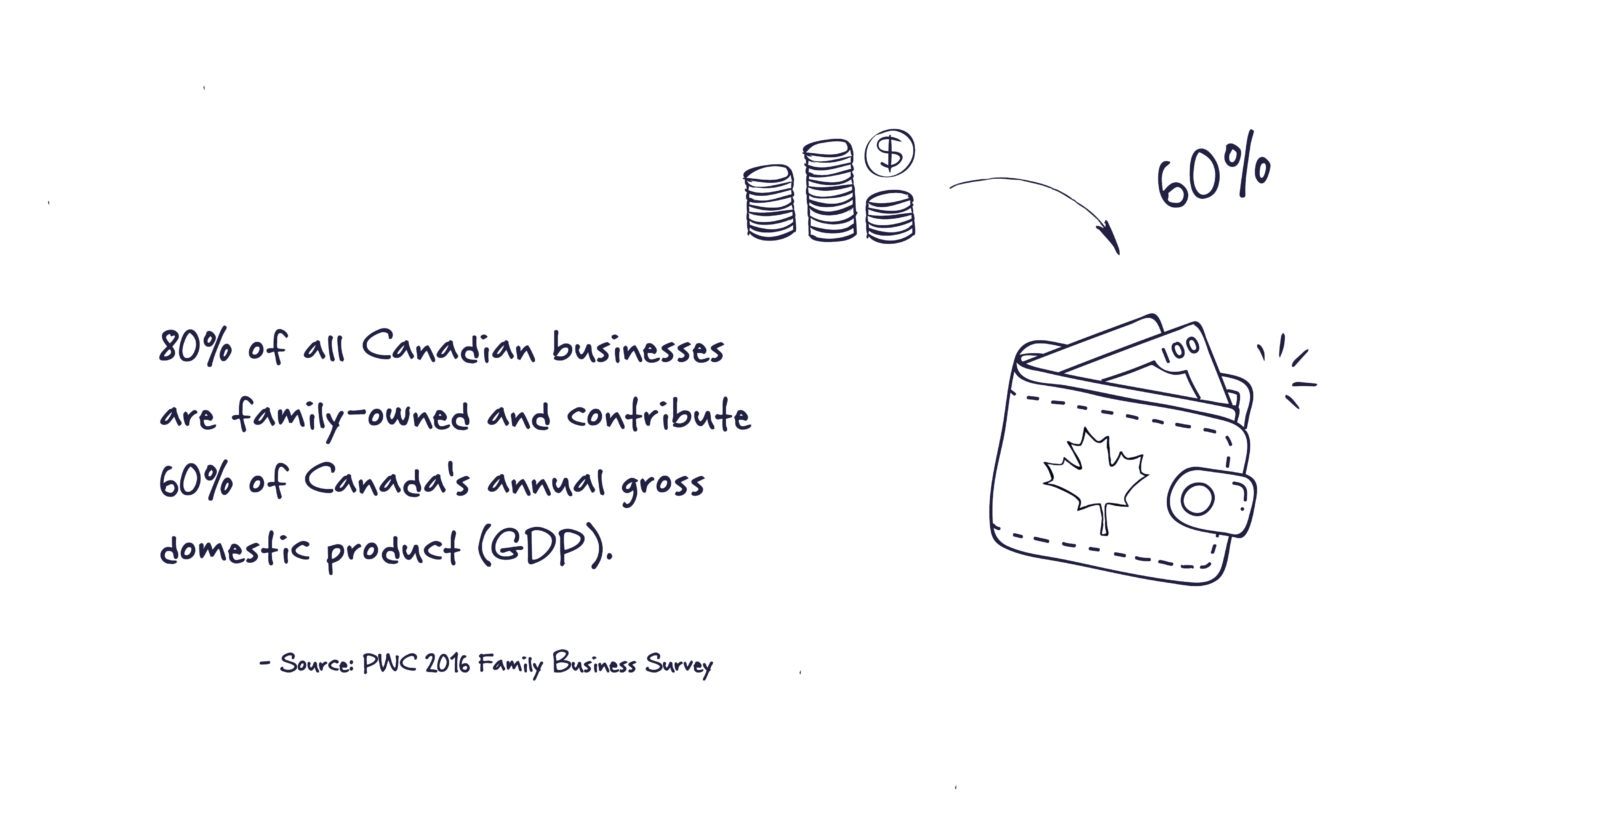 60%
80% of all Canadian businesses
are family-owned and contribute
60% of Canada's annual gross
domestic product (GDP).
- Source: PWC 2016 Family Business Survey
$
100